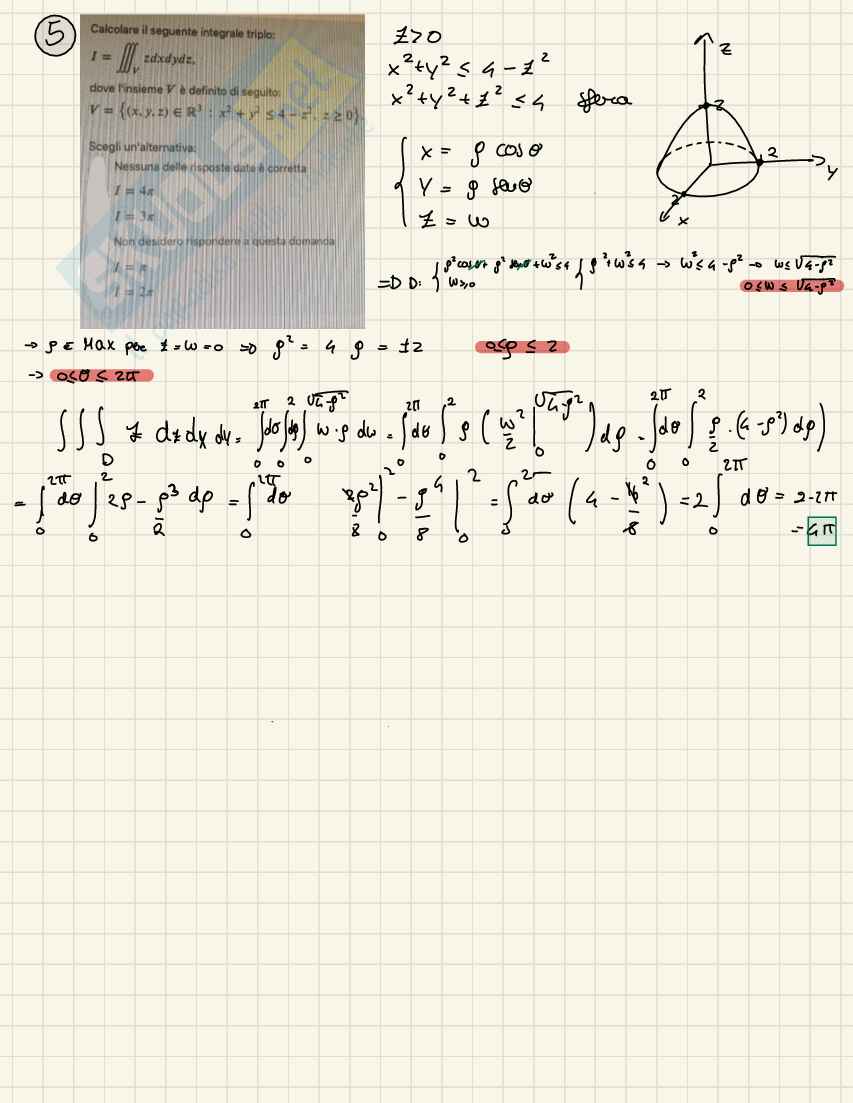 5
Calcolare il seguente integrale triplo:
I = ∭_V zdxdydz,
dove l'insieme V è definito di seguito:
V = {(x, y, z) ∈ ℝ³ : x² + y² ≤ 4 − z², z ≥ 0}.
Scegli un'alternativa:
Nessuna delle risposte date è corretta
I = 4π
I = 3π
Non desidero rispondere a questa domanda
I = π
I = 2π
Z>0
x²+y² ≤ 4-z²
x²+y²+z² ≤ 4 sfera
{ x = ρ cosθ
y = ρ senθ
z = w
z
2
2
y
2
x
=D D: { ρ²cos²θ+ ρ² sen²θ+w²≤4 { ρ²+w²≤4 → w²≤4-ρ² → w≤ √4-ρ²
w≥0 0≤w≤ √4-ρ²
→ ρ è Max per z=w=0 => ρ² = 4 ρ = ±2 0≤ρ≤2
→ 0≤θ≤2π
∫∫∫_D z dz dx dy = ∫_0^2π dθ ∫_0^2 dρ ∫_0^√4-ρ² w·ρ dw = ∫_0^2π dθ ∫_0^2 ρ (w²/2 |_0^√4-ρ²) dρ = ∫_0^2π dθ ∫_0^2 ρ/2 ·(4-ρ²) dρ)
= ∫_0^2π dθ ∫_0^2 2ρ - ρ³/2 dρ = ∫_0^2π dθ 2ρ²/2 |_0^2 - ρ⁴/8 |_0^2 = ∫_0^2π dθ (4 - 16/8 ²) = 2 ∫_0^2π dθ = 2·2π
= 4π